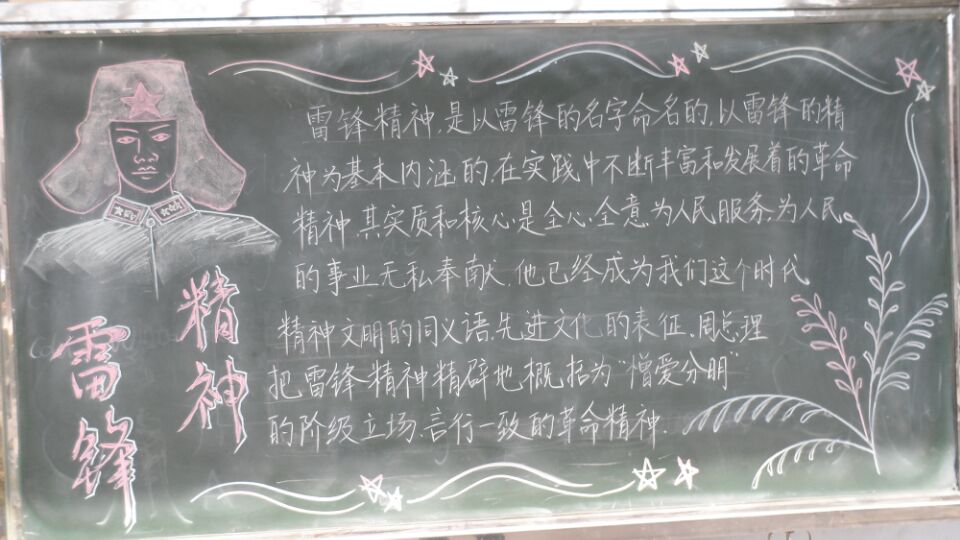 雷锋精神,是以雷锋的名字命名的,以雷锋的精
神为基本内涵的,在实践中不断丰富和发展着的革命
精神,其实质和核心是全心全意为人民服务,为人民
的事业无私奉献.他已经成为我们这个时代
精神文明的同义语,先进文化的表征.周总理
把雷锋精神精辟地概括为“憎爱分明”
的阶级立场,言行一致的革命精神.
雷锋
精神